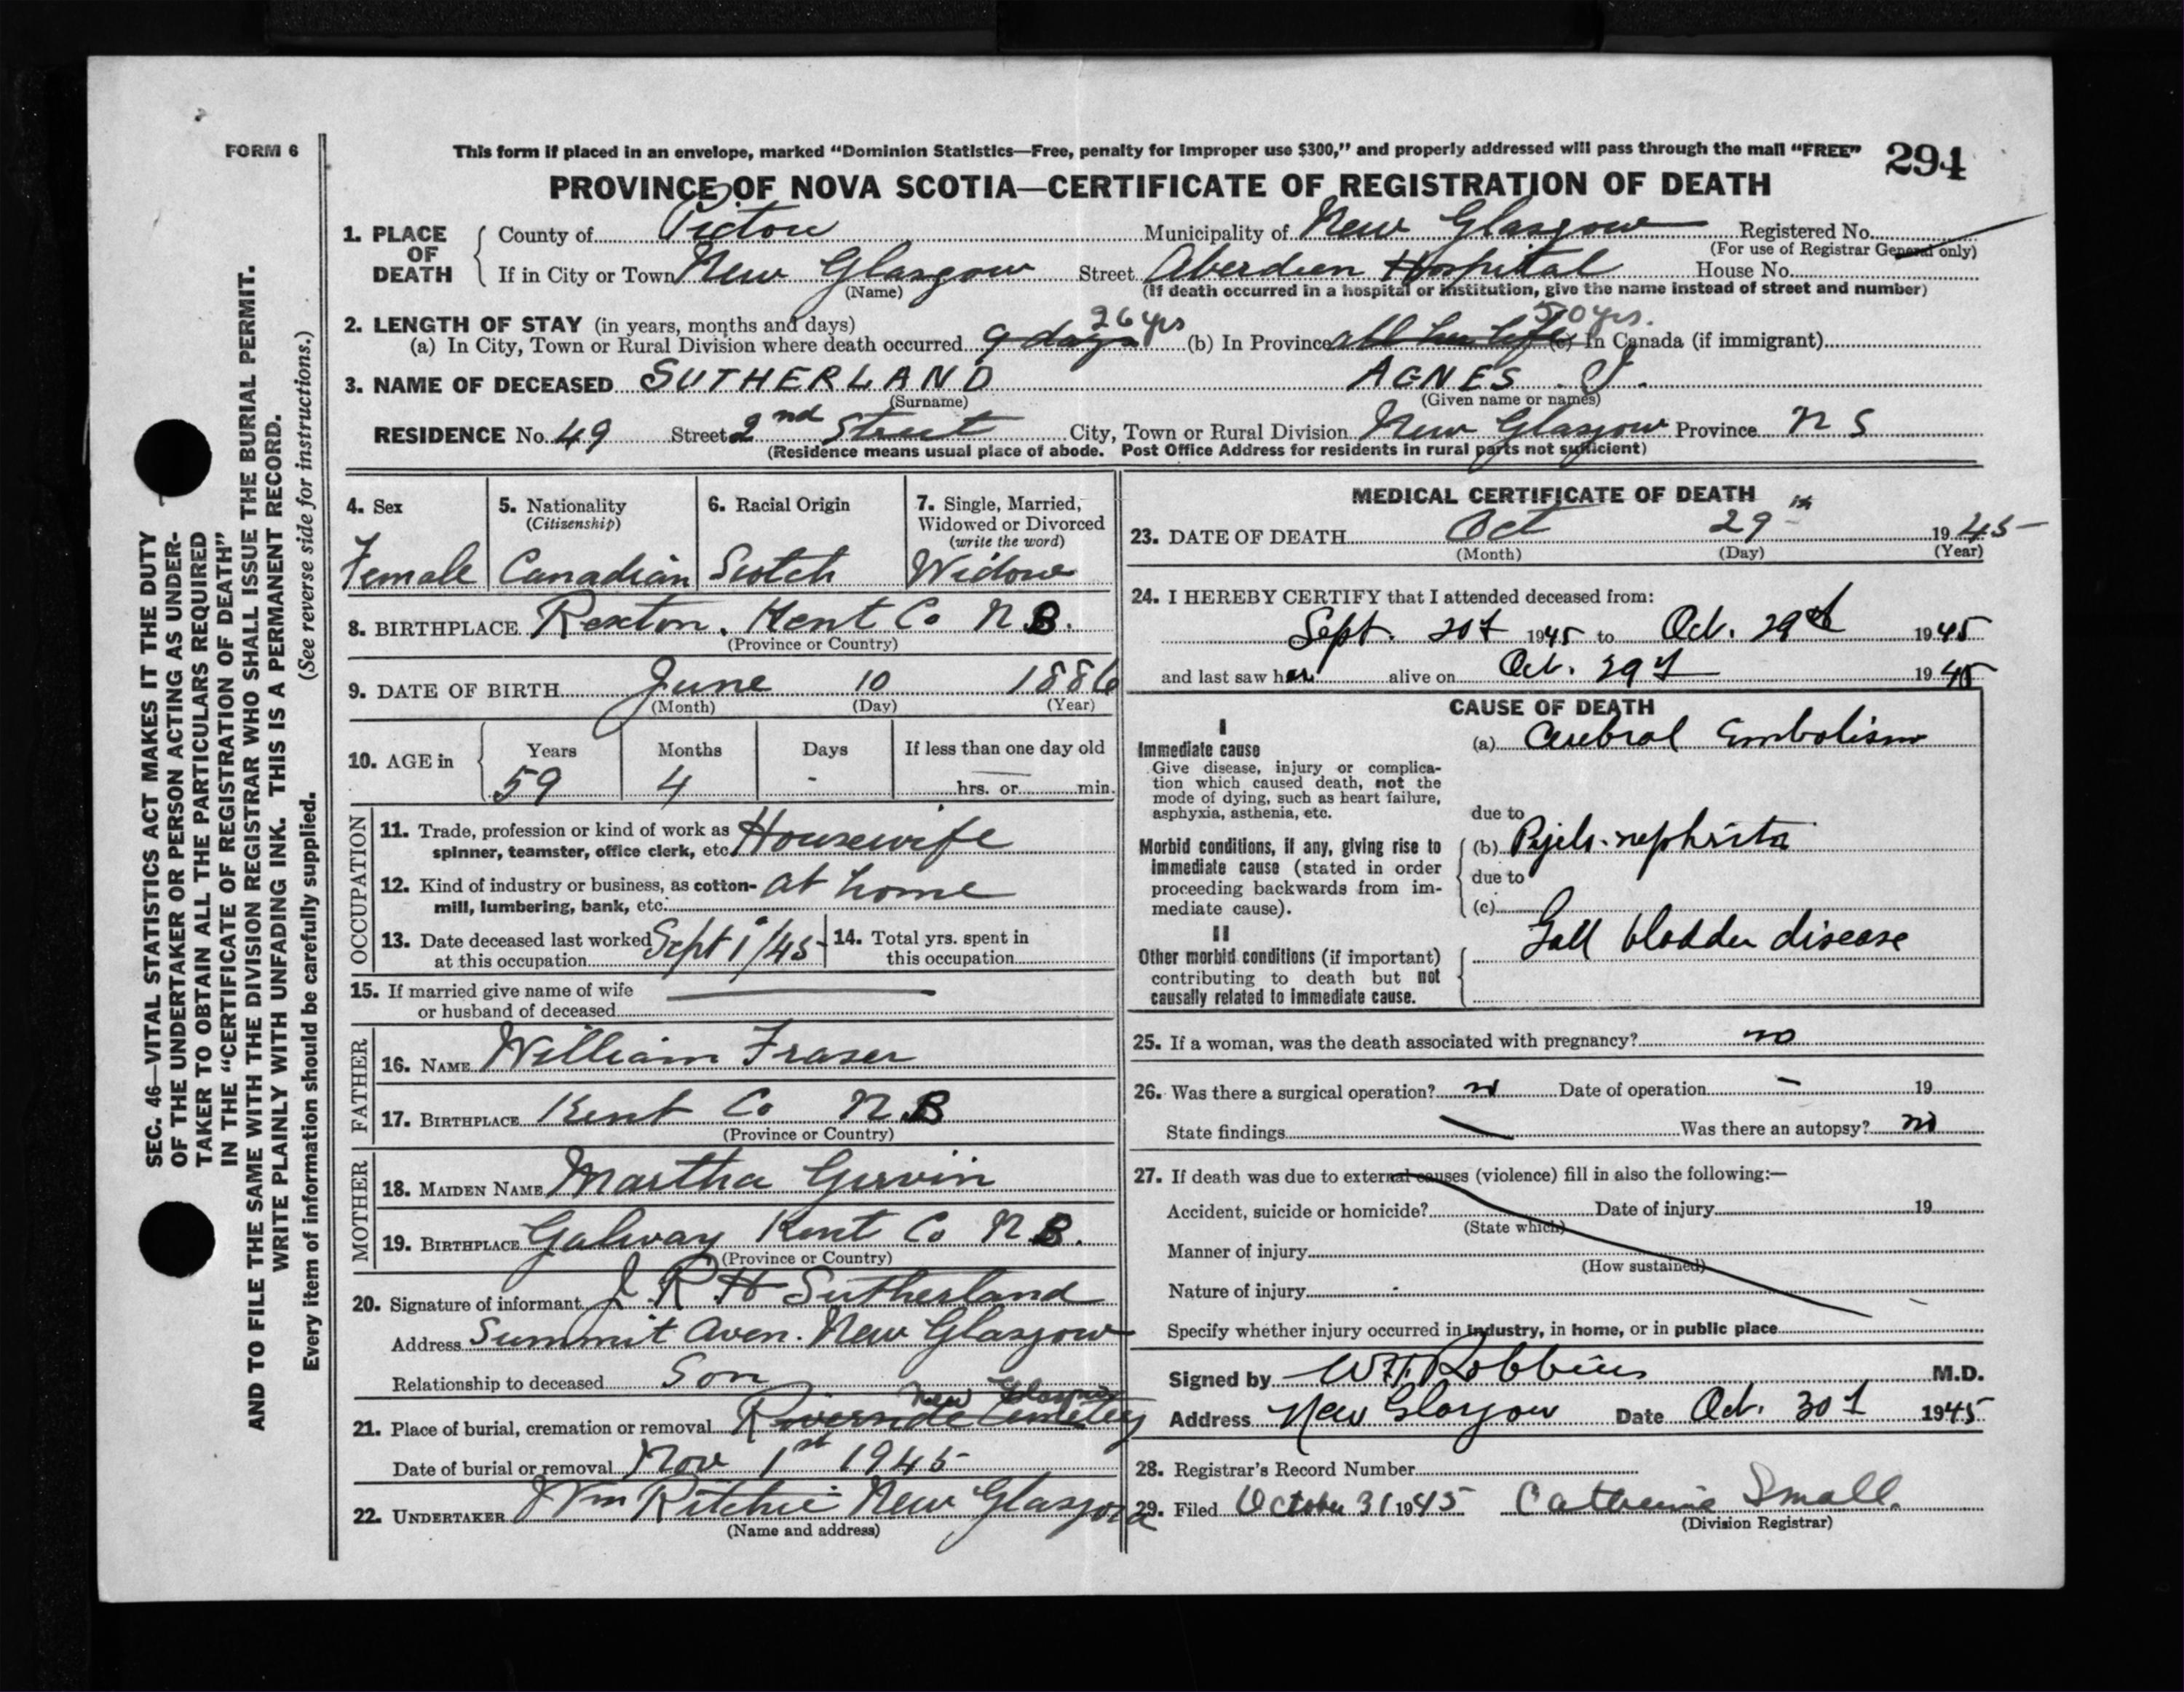 FORM 6
This form if placed in an envelope, marked "Dominion Statistics—Free, penalty for improper use $300," and properly addressed will pass through the mail "FREE"
294
PROVINCE OF NOVA SCOTIA—CERTIFICATE OF REGISTRATION OF DEATH
1. PLACE OF DEATH County of Pictou Municipality of New Glasgow Registered No.
(For use of Registrar General only)
If in City or Town New Glasgow Street Aberdeen Hospital House No.
(Name) (If death occurred in a hospital or institution, give the name instead of street and number)
2. LENGTH OF STAY (in years, months and days) 26 yrs 50 yrs.
(a) In City, Town or Rural Division where death occurred 9 days (b) In Province all her life (c) In Canada (if immigrant)
3. NAME OF DECEASED SUTHERLAND AGNES J.
(Surname) (Given name or names)
RESIDENCE No. 49 Street 2nd Street City, Town or Rural Division New Glasgow Province N S
(Residence means usual place of abode. Post Office Address for residents in rural parts not sufficient)
4. Sex 5. Nationality 6. Racial Origin 7. Single, Married,
(Citizenship) Widowed or Divorced
(write the word)
Female Canadian Scotch Widow
8. BIRTHPLACE Rexton, Kent Co N.B.
(Province or Country)
9. DATE OF BIRTH June 10 1886
(Month) (Day) (Year)
10. AGE in Years Months Days If less than one day old
59 4 - hrs. or min.
OCCUPATION
11. Trade, profession or kind of work as Housewife
spinner, teamster, office clerk, etc.
12. Kind of industry or business, as cotton- at home
mill, lumbering, bank, etc.
13. Date deceased last worked Sept 1/45 14. Total yrs. spent in
at this occupation this occupation
15. If married give name of wife
or husband of deceased
FATHER
16. NAME William Fraser
17. BIRTHPLACE Kent Co N.B
(Province or Country)
MOTHER
18. MAIDEN NAME Martha Girvin
19. BIRTHPLACE Galway Kent Co N.B.
(Province or Country)
20. Signature of informant J. R. H Sutherland
Address Summit Aven. New Glasgow
Relationship to deceased Son
New Glasgow
21. Place of burial, cremation or removal Riverside Cemetery
Date of burial or removal Nov 1st 1945
22. UNDERTAKER Wm Ritchie New Glasgow
(Name and address)
MEDICAL CERTIFICATE OF DEATH
23. DATE OF DEATH Oct 29th 1945
(Month) (Day) (Year)
24. I HEREBY CERTIFY that I attended deceased from:
Sept. 1945 to Oct. 29th 1945
and last saw her alive on Oct. 29 1945
CAUSE OF DEATH
I
Immediate cause (a) Cerebral Embolism
Give disease, injury or complica-
tion which caused death, not the
mode of dying, such as heart failure,
asphyxia, asthenia, etc. due to
Morbid conditions, if any, giving rise to (b) Pyelo-nephritis
immediate cause (stated in order due to
proceeding backwards from im-
mediate cause). (c)
II Gall bladder disease
Other morbid conditions (if important)
contributing to death but not
causally related to immediate cause.
25. If a woman, was the death associated with pregnancy? no
26. Was there a surgical operation? no Date of operation - 19
State findings Was there an autopsy? no
27. If death was due to external causes (violence) fill in also the following:—
Accident, suicide or homicide? Date of injury 19
(State which)
Manner of injury
(How sustained)
Nature of injury
Specify whether injury occurred in industry, in home, or in public place
Signed by Robbins M.D.
Address New Glasgow Date Oct. 30 1945
28. Registrar's Record Number
29. Filed October 31 1945 Catherine Small.
(Division Registrar)
SEC. 46—VITAL STATISTICS ACT MAKES IT THE DUTY
OF THE UNDERTAKER OR PERSON ACTING AS UNDER-
TAKER TO OBTAIN ALL THE PARTICULARS REQUIRED
IN THE "CERTIFICATE OF REGISTRATION OF DEATH"
AND TO FILE THE SAME WITH THE DIVISION REGISTRAR WHO SHALL ISSUE THE BURIAL PERMIT.
WRITE PLAINLY WITH UNFADING INK. THIS IS A PERMANENT RECORD.
Every item of information should be carefully supplied. (See reverse side for instructions.)